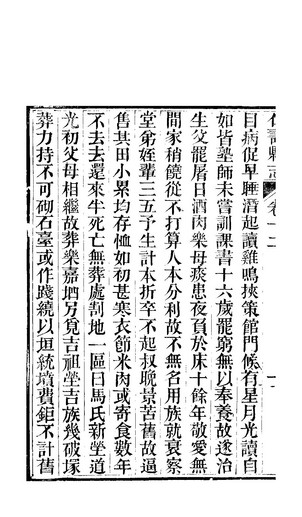 縣志 卷十二
目病促早睡潛起讀雞鳴挾策館門候有星月光讀自
如皆塾師未嘗訓課書十六歲罷窮無以奉養故遂治
生父罷屠日酒肉樂母痰患夜負於床十餘年敬愛無
間家稍饒從不打算人本分利故不無名用族就衰察
堂弟姪輩三五予生計本折卒不起叔景苦舊故逼
售其田小累均存恤如初甚寒衣節米肉或寄食數年
不去去還來牛死亡無葬處割地一區曰馬氏新塋道
光初父母相繼故葬樂嘉壩另覓吉祖塋吉族幾破塚
葬力持不可砌石臺或作踐繞以垣統墳費鉅不計舊